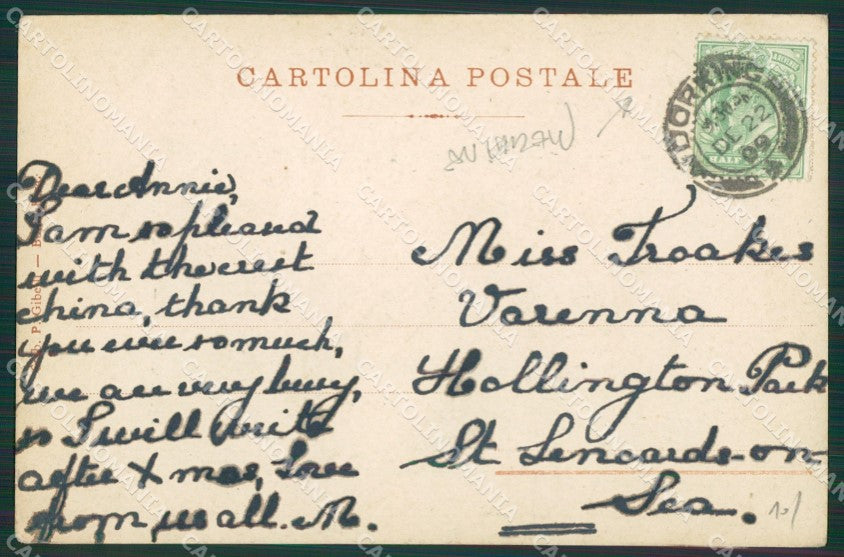 CARTOLINA POSTALE
DORKING
DE 22
09
HALF
Dear Annie,
I am so pleased
with the crest
china, thank
you ever so much,
we are very busy,
so I will write
after Xmas, Love
from us all. M.
Miss Troakes
Varenna
Hollington Park
St Leneards-on-
Sea.
10/
CARTOLINOMANIA